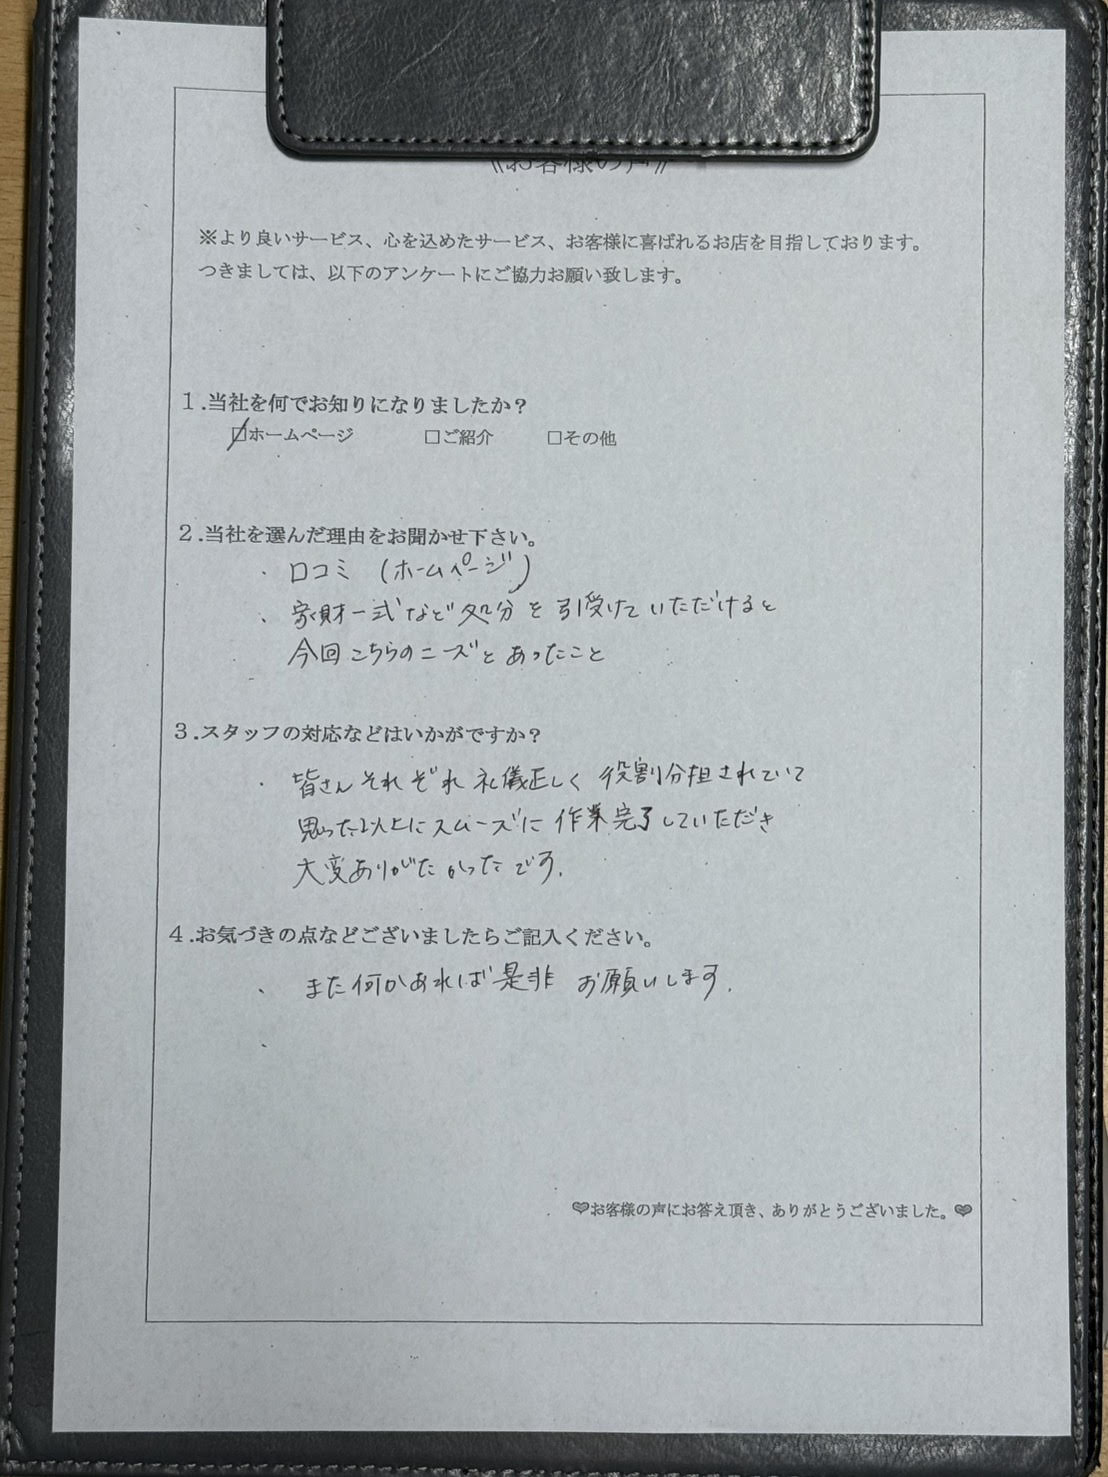 《お客様の声》
※より良いサービス、心を込めたサービス、お客様に喜ばれるお店を目指しております。
つきましては、以下のアンケートにご協力お願い致します。
1.当社を何でお知りになりましたか？
☑ホームページ □ご紹介 □その他
2.当社を選んだ理由をお聞かせ下さい。
・口コミ (ホームページ)
・家財一式など処分を引受けていただけると
今回こちらのニーズとあったこと
3.スタッフの対応などはいかがですか？
・皆さんそれぞれ礼儀正しく役割分担されていて
思った以上にスムーズに作業完了していただき
大変ありがたかったです.
4.お気づきの点などございましたらご記入ください。
・また何かあれば是非お願いします.
♥お客様の声にお答え頂き、ありがとうございました。♥